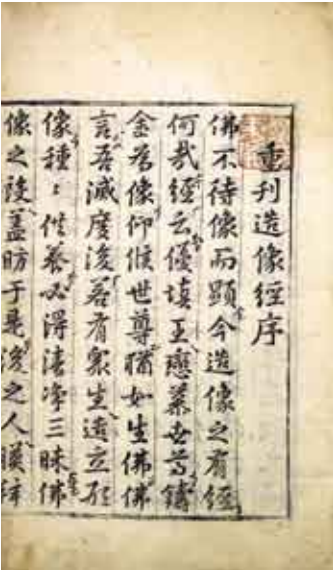 重刊造像經序
佛不待像而顯今造像之有經
何哉經云優填王戀慕世尊鑄
金為像仰候世尊猶如生佛佛
言吾滅度後若有眾生造立形
像種〻供養必得清淨三昧佛
像之設蓋昉于是後之人